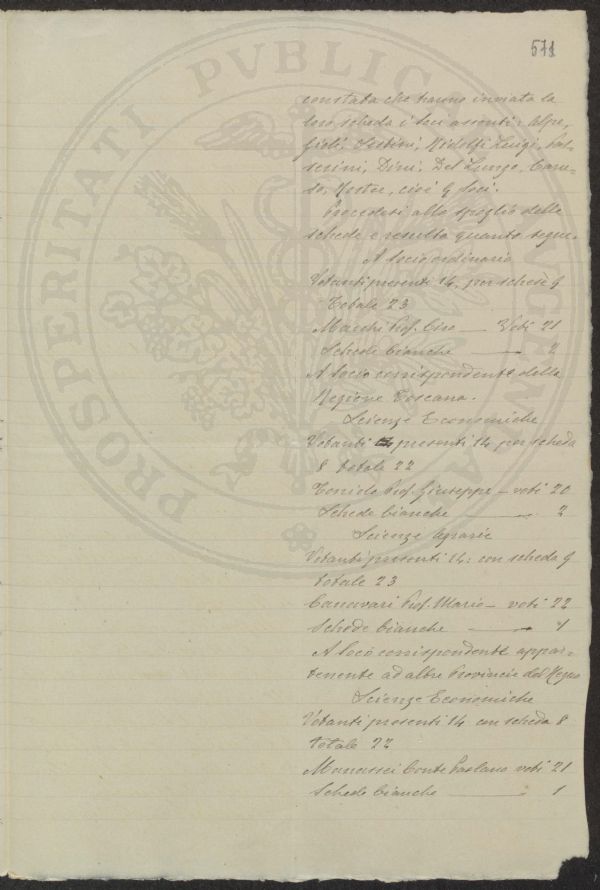 571
constata che hanno inviata la
loro scheda i soci assenti: Alpe,
Gioli, Sestini, Ridolfi Luigi, Pas-
serini, Dini, Del Lungo, Caru-
so, cioè 9 soci.
Procedesi allo spoglio delle
schede e resulta quanto segue.
A Socio ordinario
Votanti presenti 14, per schede 9
Totale 23
Marchi Prof. Ciro — Voti 21
Schede bianche — 2
A Socio corrispondente della
Regione Toscana.
Scienze Economiche
Votanti presenti 14 per scheda
8 totale 22
Toniolo Prof. Giuseppe — voti 20
Schede bianche — 2
Scienze Agrarie
Votanti presenti 14: con scheda 9
totale 23
Canavari Prof. Mario — voti 22
Schede bianche — 1
A Socio corrispondente appar-
tenente ad altre Provincie del Regno
Scienze Economiche
Votanti presenti 14 con scheda 8
totale 22
Manassei Conte Paolano voti 21
Schede bianche — " 1
PROSPERITATI PVBLICAE AVGENDAE